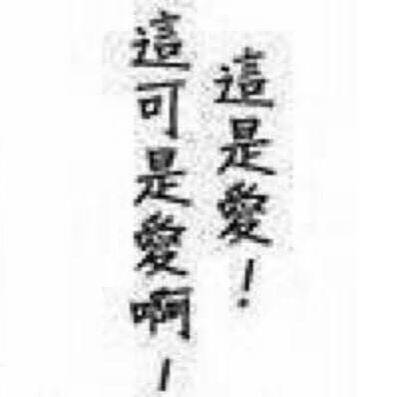 這是愛!
這可是愛啊!